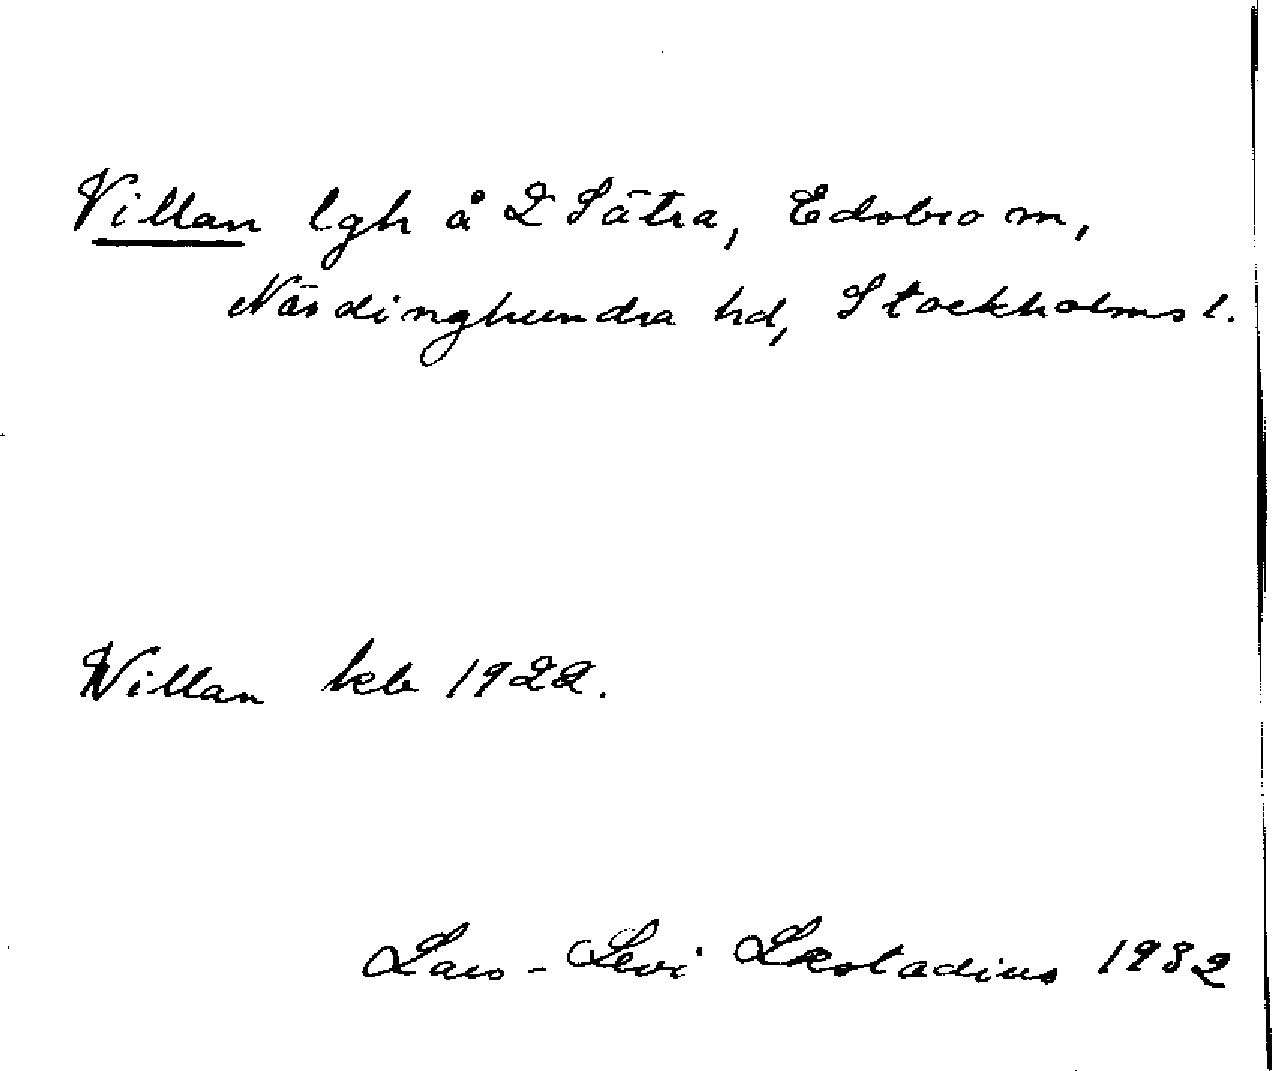 Villan lgh å 2 Sätra, Edsbro sn,
Närdinghundra hd, Stockholms l.
Willan kb 1922.
Lars-Levi Læstadius 1932